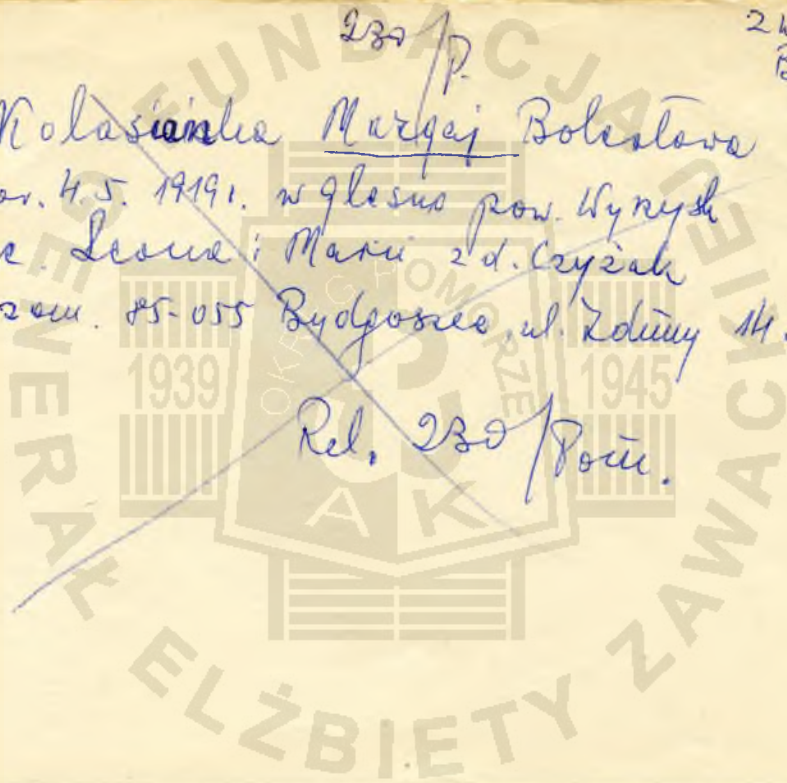 230/P.
Kolasianka Marzaj Bolesława
ur. 4.5. 1919r. w Glesno pow. Wyrzysk
c. Leona i Marii z d. Czyżak
zam. 85-055 Bydgoszcz, ul. Zduny 14
Rel. 230/Pom.
FUNDACJA
GENERAŁ ELŻBIETY ZAWACKIEJ
OKRĘG POMORZE
1939
1945
AK